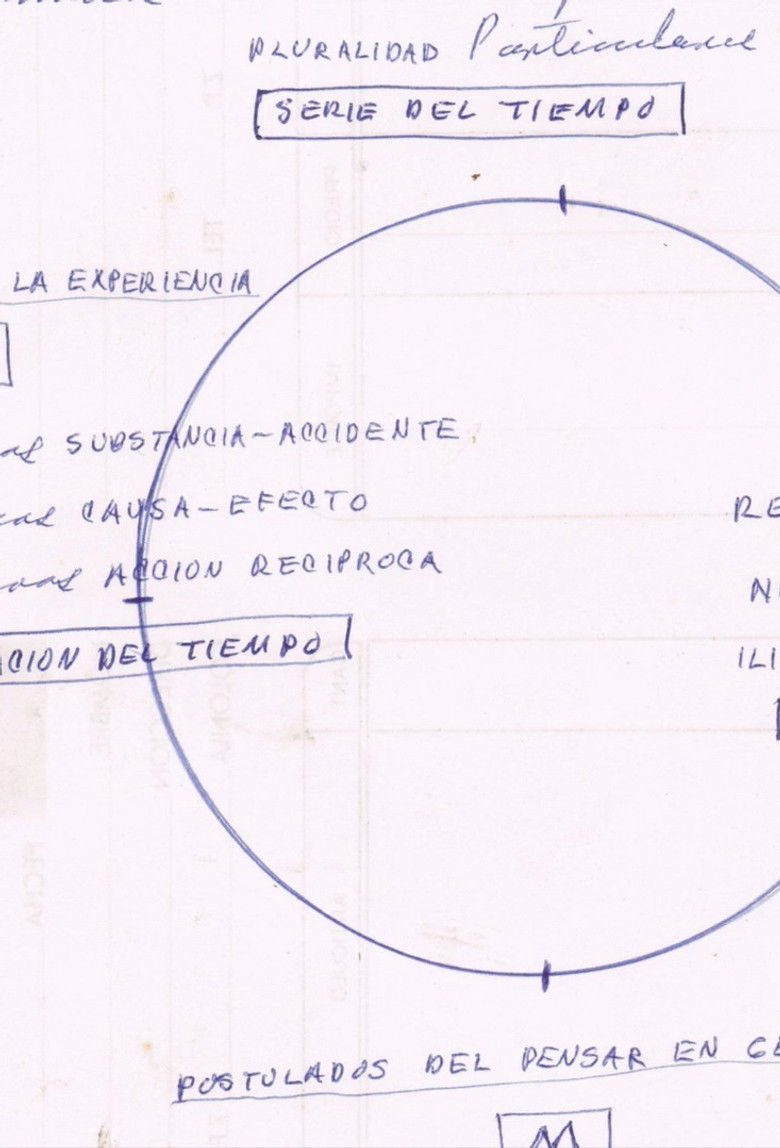 PLURALIDAD Particulares
SERIE DEL TIEMPO
LA EXPERIENCIA
SUBSTANCIA-ACCIDENTE
CAUSA-EFECTO
RE
ACCION RECIPROCA
N
CION DEL TIEMPO
ILI
POSTULADOS DEL PENSAR EN GE
M